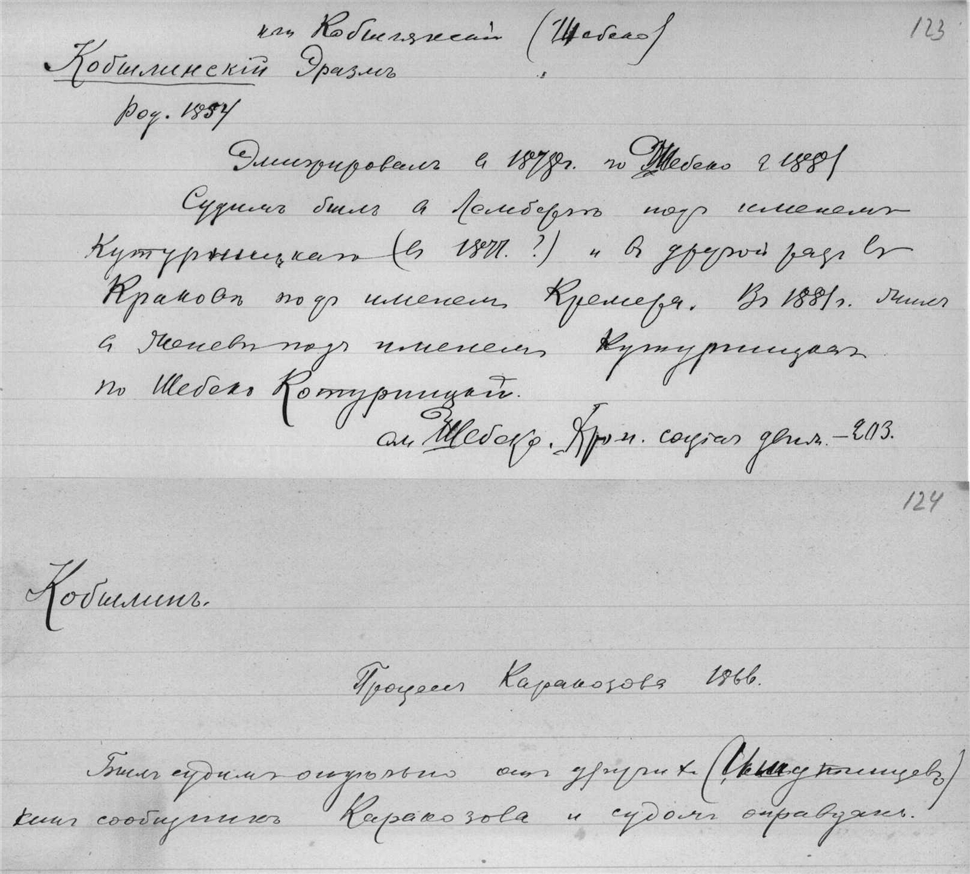 или Кобылянский (Шебеко) 123
Кобылинскій Эразмъ
род. 1854
Эмигрировалъ в 1878г. по Шебеко в 1881
Судимъ былъ в Лемберге подъ именемъ
Кутурницкаго (в 1877. ?) и в другой разъ в
Кракове подъ именем Кремера. Въ 1881г. жилъ
в Женеве подъ именем Кутурницкаго
по Шебеко Котурницкій.
см Шебеко. Хрон. социал движ. – 203.
124
Кобылинъ.
Процессъ Каракозова 1866.
Былъ судимъ отдельно отъ других (Ишутинцевъ)
какъ сообщникъ Каракозова и судомъ оправданъ.